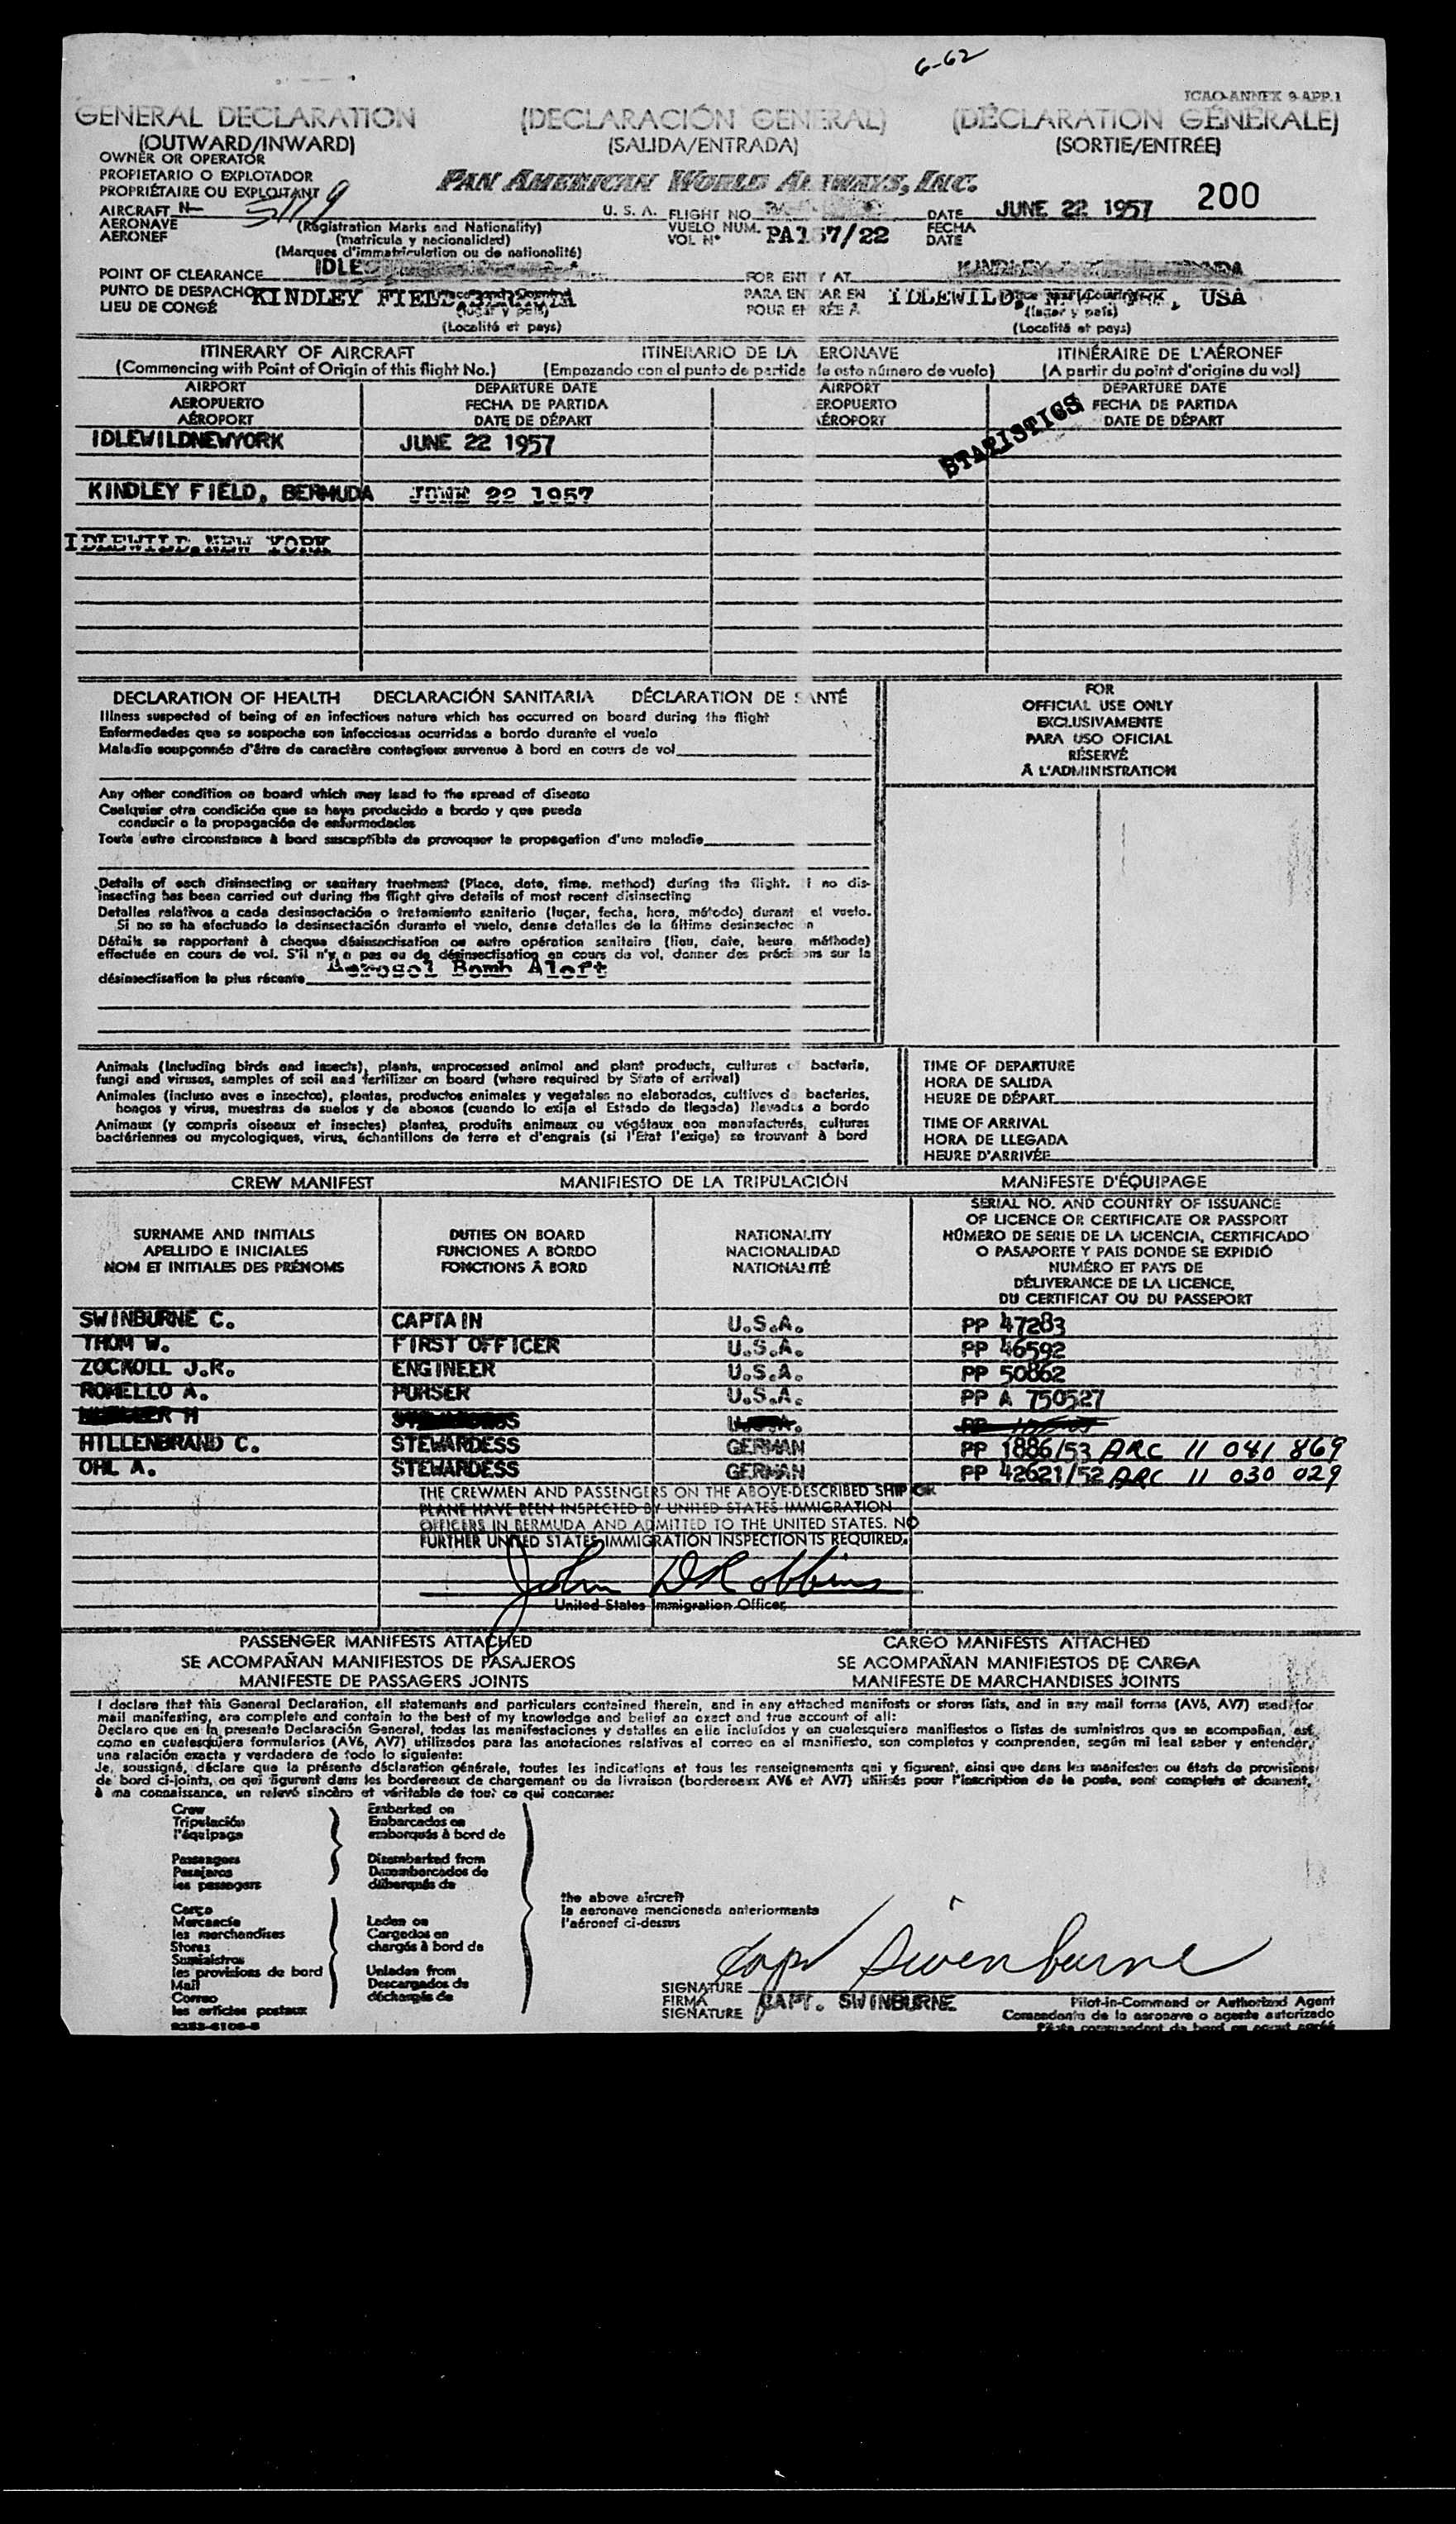 6-62
ICAO-ANNEX 9-APP.1
GENERAL DECLARATION (DECLARACIÓN GENERAL) (DÉCLARATION GÉNÉRALE)
(OUTWARD/INWARD) (SALIDA/ENTRADA) (SORTIE/ENTRÉE)
OWNER OR OPERATOR
PROPIETARIO O EXPLOTADOR
PROPRIÉTAIRE OU EXPLOITANT
PAN AMERICAN WORLD AIRWAYS, INC.
200
AIRCRAFT N- U. S. A. FLIGHT NO DATE JUNE 22 1957
AERONAVE (Registration Marks and Nationality) VUELO NUM. PA157/22 FECHA
AERONEF (matricula y nacionalidad) VOL N° DATE
(Marques d'immatriculation ou de nationalité)
POINT OF CLEARANCE FOR ENTRY AT
PUNTO DE DESPACHO KINDLEY FIELD, BERMUDA PARA ENTRAR EN IDLEWILD, NEW YORK, USA
LIEU DE CONGÉ (lugar y país) POUR ENTRÉE À (lugar y país)
(Localité et pays) (Localité et pays)
ITINERARY OF AIRCRAFT ITINERARIO DE LA AERONAVE ITINÉRAIRE DE L'AÉRONEF
(Commencing with Point of Origin of this flight No.) (Empezando con el punto de partida de este número de vuelo) (A partir du point d'origine du vol)
AIRPORT DEPARTURE DATE AIRPORT DEPARTURE DATE
AEROPUERTO FECHA DE PARTIDA AEROPUERTO FECHA DE PARTIDA
AÉROPORT DATE DE DÉPART AÉROPORT DATE DE DÉPART
STATISTICS
IDLEWILDNEWYORK JUNE 22 1957
KINDLEY FIELD, BERMUDA JUNE 22 1957
IDLEWILD, NEW YORK
DECLARATION OF HEALTH DECLARACIÓN SANITARIA DÉCLARATION DE SANTÉ
Illness suspected of being of an infectious nature which has occurred on board during the flight
Enfermedades que se sospecha son infecciosas ocurridas a bordo durante el vuelo
Maladie soupçonnée d'être de caractère contagieux survenue à bord en cours de vol
FOR
OFFICIAL USE ONLY
EXCLUSIVAMENTE
PARA USO OFICIAL
RÉSERVÉ
À L'ADMINISTRATION
Any other condition on board which may lead to the spread of disease
Cualquier otra condición que se haya producido a bordo y que pueda
conducir a la propagación de enfermedades
Toute autre circonstance à bord susceptible de provoquer la propagation d'une maladie
Details of each disinsecting or sanitary treatment (Place, date, time, method) during the flight. If no dis-
insecting has been carried out during the flight give details of most recent disinsecting
Detalles relativos a cada desinsectación o tratamiento sanitario (lugar, fecha, hora, método) durante el vuelo.
Si no se ha efectuado la desinsectación durante el vuelo, dense detalles de la última desinsectación
Détails se rapportant à chaque désinsectisation ou autre opération sanitaire (lieu, date, heure, méthode)
effectuée en cours de vol. S'il n'y a pas eu de désinsectisation en cours de vol, donner des précisions sur la
désinsectisation la plus récente Aerosol Bomb Aloft
Animals (including birds and insects), plants, unprocessed animal and plant products, cultures of bacteria,
fungi and viruses, samples of soil and fertilizer on board (where required by State of arrival)
Animales (incluso aves e insectos), plantas, productos animales y vegetales no elaborados, cultivos de bacterias,
hongos y virus, muestras de suelos y de abonos (cuando lo exija el Estado de llegada) llevados a bordo
Animaux (y compris oiseaux et insectes) plantes, produits animaux ou végétaux non manufacturés, cultures
bactériennes ou mycologiques, virus, échantillons de terre et d'engrais (si l'Etat l'exige) se trouvant à bord
TIME OF DEPARTURE
HORA DE SALIDA
HEURE DE DÉPART
TIME OF ARRIVAL
HORA DE LLEGADA
HEURE D'ARRIVÉE
CREW MANIFEST MANIFIESTO DE LA TRIPULACIÓN MANIFESTE D'ÉQUIPAGE
SURNAME AND INITIALS
APELLIDO E INICIALES
NOM ET INITIALES DES PRÉNOMS
DUTIES ON BOARD
FUNCIONES A BORDO
FONCTIONS À BORD
NATIONALITY
NACIONALIDAD
NATIONALITÉ
SERIAL NO. AND COUNTRY OF ISSUANCE
OF LICENCE OR CERTIFICATE OR PASSPORT
NÚMERO DE SERIE DE LA LICENCIA, CERTIFICADO
O PASAPORTE Y PAIS DONDE SE EXPIDIÓ
NUMÉRO ET PAYS DE
DÉLIVERANCE DE LA LICENCE,
DU CERTIFICAT OU DU PASSEPORT
SWINBURNE C. CAPTAIN U.S.A. PP 47283
THOM W. FIRST OFFICER U.S.A. PP 46592
ZOCKOLL J.R. ENGINEER U.S.A. PP 50862
ROMELLO A. PURSER U.S.A. PP A 750527
HILLENBRAND C. STEWARDESS GERMAN PP 1886/53 ARC 11 041 869
OHL A. STEWARDESS GERMAN PP 42621/52 ARC 11 030 029
THE CREWMEN AND PASSENGERS ON THE ABOVE-DESCRIBED SHIP OR
PLANE HAVE BEEN INSPECTED BY UNITED STATES IMMIGRATION
OFFICERS IN BERMUDA AND ADMITTED TO THE UNITED STATES. NO
FURTHER UNITED STATES IMMIGRATION INSPECTION IS REQUIRED.
John D Robbins
United States Immigration Officer
PASSENGER MANIFESTS ATTACHED CARGO MANIFESTS ATTACHED
SE ACOMPAÑAN MANIFIESTOS DE PASAJEROS SE ACOMPAÑAN MANIFIESTOS DE CARGA
MANIFESTE DE PASSAGERS JOINTS MANIFESTE DE MARCHANDISES JOINTS
I declare that this General Declaration, all statements and particulars contained therein, and in any attached manifests or stores lists, and in any mail forms (AV6, AV7) used for
mail manifesting, are complete and contain to the best of my knowledge and belief an exact and true account of all:
Declaro que en la presente Declaración General, todas las manifestaciones y detalles en ella incluídos y en cualesquiera manifiestos o listas de suministros que se acompañan, así
como en cualesquiera formularios (AV6, AV7) utilizados para las anotaciones relativas al correo en el manifiesto, son completos y comprenden, según mi leal saber y entender,
una relación exacta y verdadera de todo lo siguiente:
Je, soussigné, déclare que la présente déclaration générale, toutes les indications et tous les renseignements qui y figurent, ainsi que dans les manifestes ou états de provisions
de bord ci-joints, ou qui figurent dans les bordereaux de chargement ou de livraison (bordereaux AV6 et AV7) utilisés pour l'inscription de la poste, sont complets et donnent,
à ma connaissance, un relevé sincère et véritable de tout ce qui concerne:
Crew Embarked on
Tripulación Embarcados en
l'équipage embarqués à bord de
Passengers Disembarked from
Pasajeros Desembarcados de
les passagers débarqués de
the above aircraft
la aeronave mencionada anteriormente
l'aéronef ci-dessus
Cargo
Mercancía Laden on
les marchandises Cargados en
Stores chargés à bord de
Suministros
les provisions de bord Unladen from
Mail Descargados de
Correo déchargés de
les articles postaux
Capt Swinburne
SIGNATURE
FIRMA CAPT. SWINBURNE Pilot-in-Command or Authorized Agent
SIGNATURE Comandante de la aeronave o agente autorizado
Pilote commandant de bord ou agent agréé